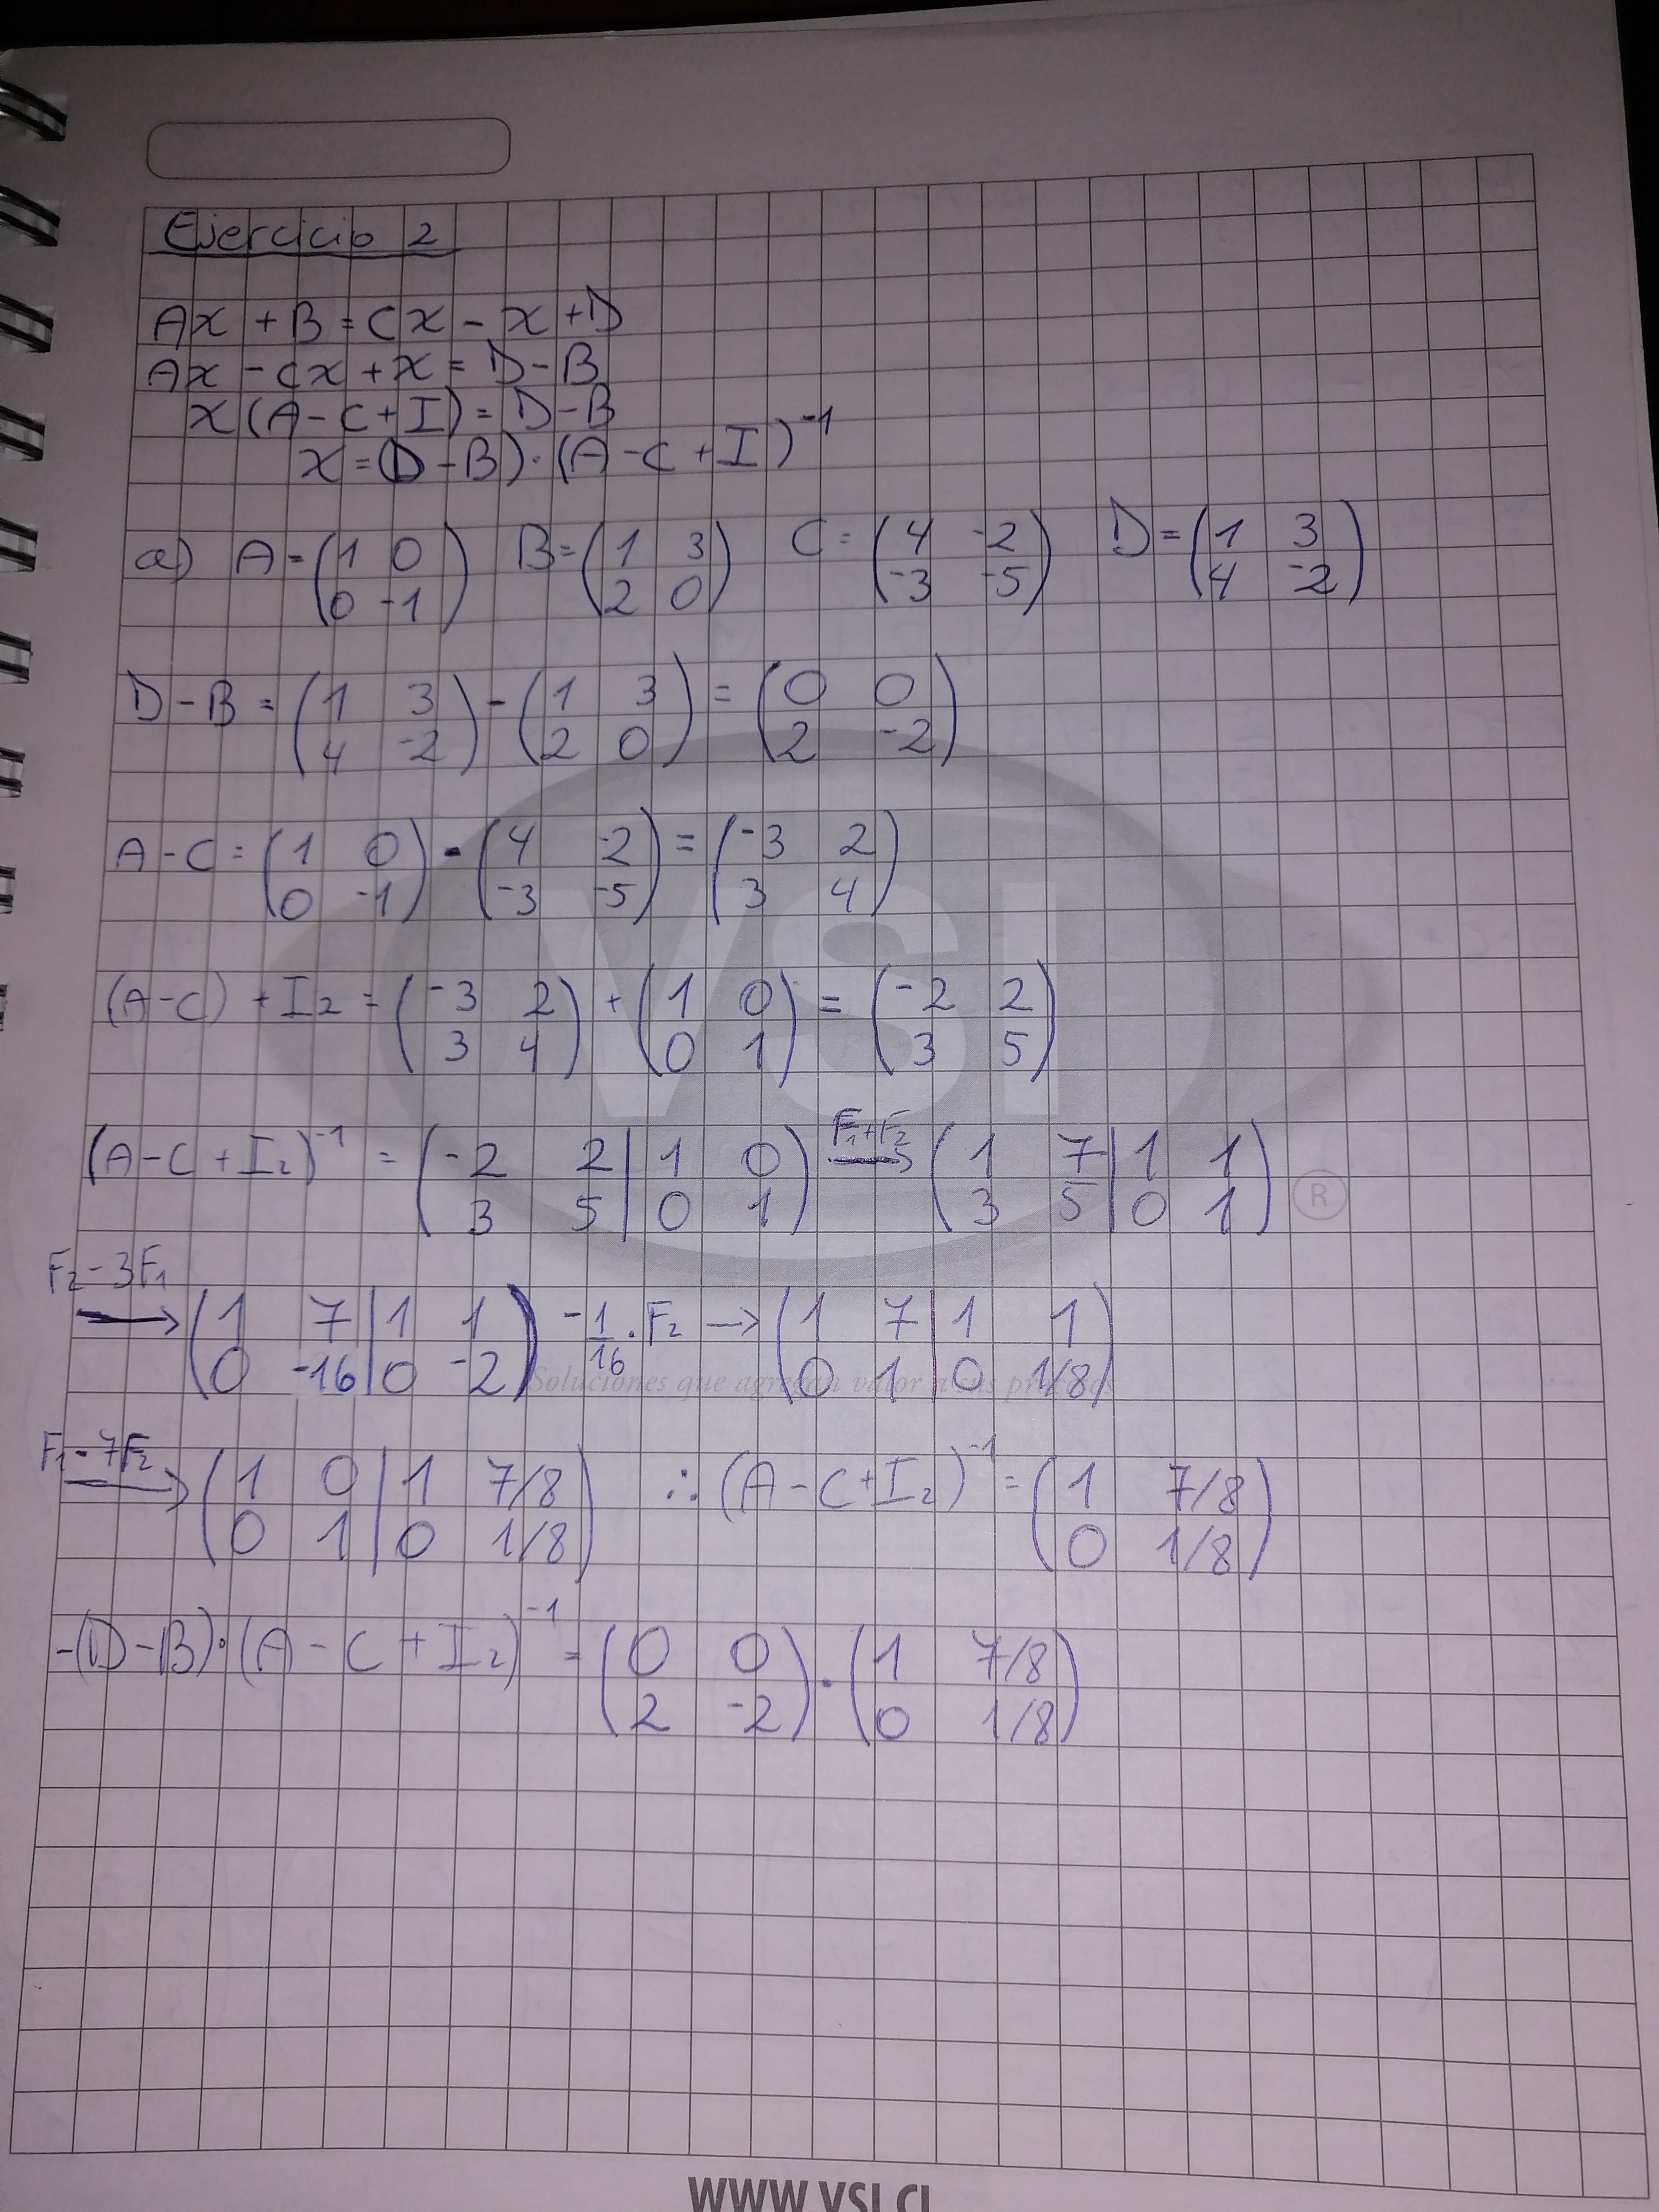 Ejercicio 2
Ax + B = Cx - x + D
Ax - Cx + x = D - B
x (A - C + I) = D - B
x = (D - B) · (A - C + I)⁻¹
a) A = (1 0 / 0 -1) B = (1 3 / 2 0) C = (4 -2 / -3 -5) D = (1 3 / 4 -2)
D - B = (1 3 / 4 -2) - (1 3 / 2 0) = (0 0 / 2 -2)
A - C = (1 0 / 0 -1) - (4 -2 / -3 -5) = (-3 2 / 3 4)
(A - C) + I₂ = (-3 2 / 3 4) + (1 0 / 0 1) = (-2 2 / 3 5)
(A - C + I₂)⁻¹ = (-2 2 | 1 0 / 3 5 | 0 1) F₁+F₂ → (1 7 | 1 1 / 3 5 | 0 1)
F₂ - 3F₁ → (1 7 | 1 1 / 0 -16 | 0 -2) -1/16 · F₂ → (1 7 | 1 1 / 0 1 | 0 1/8)
F₁ - 7F₂ → (1 0 | 1 7/8 / 0 1 | 0 1/8) ∴ (A - C + I₂)⁻¹ = (1 7/8 / 0 1/8)
-(D - B) · (A - C + I₂)⁻¹ = (0 0 / 2 -2) · (1 7/8 / 0 1/8)
VSI ®
Soluciones que agregan valor a sus
WWW.VSI.CL